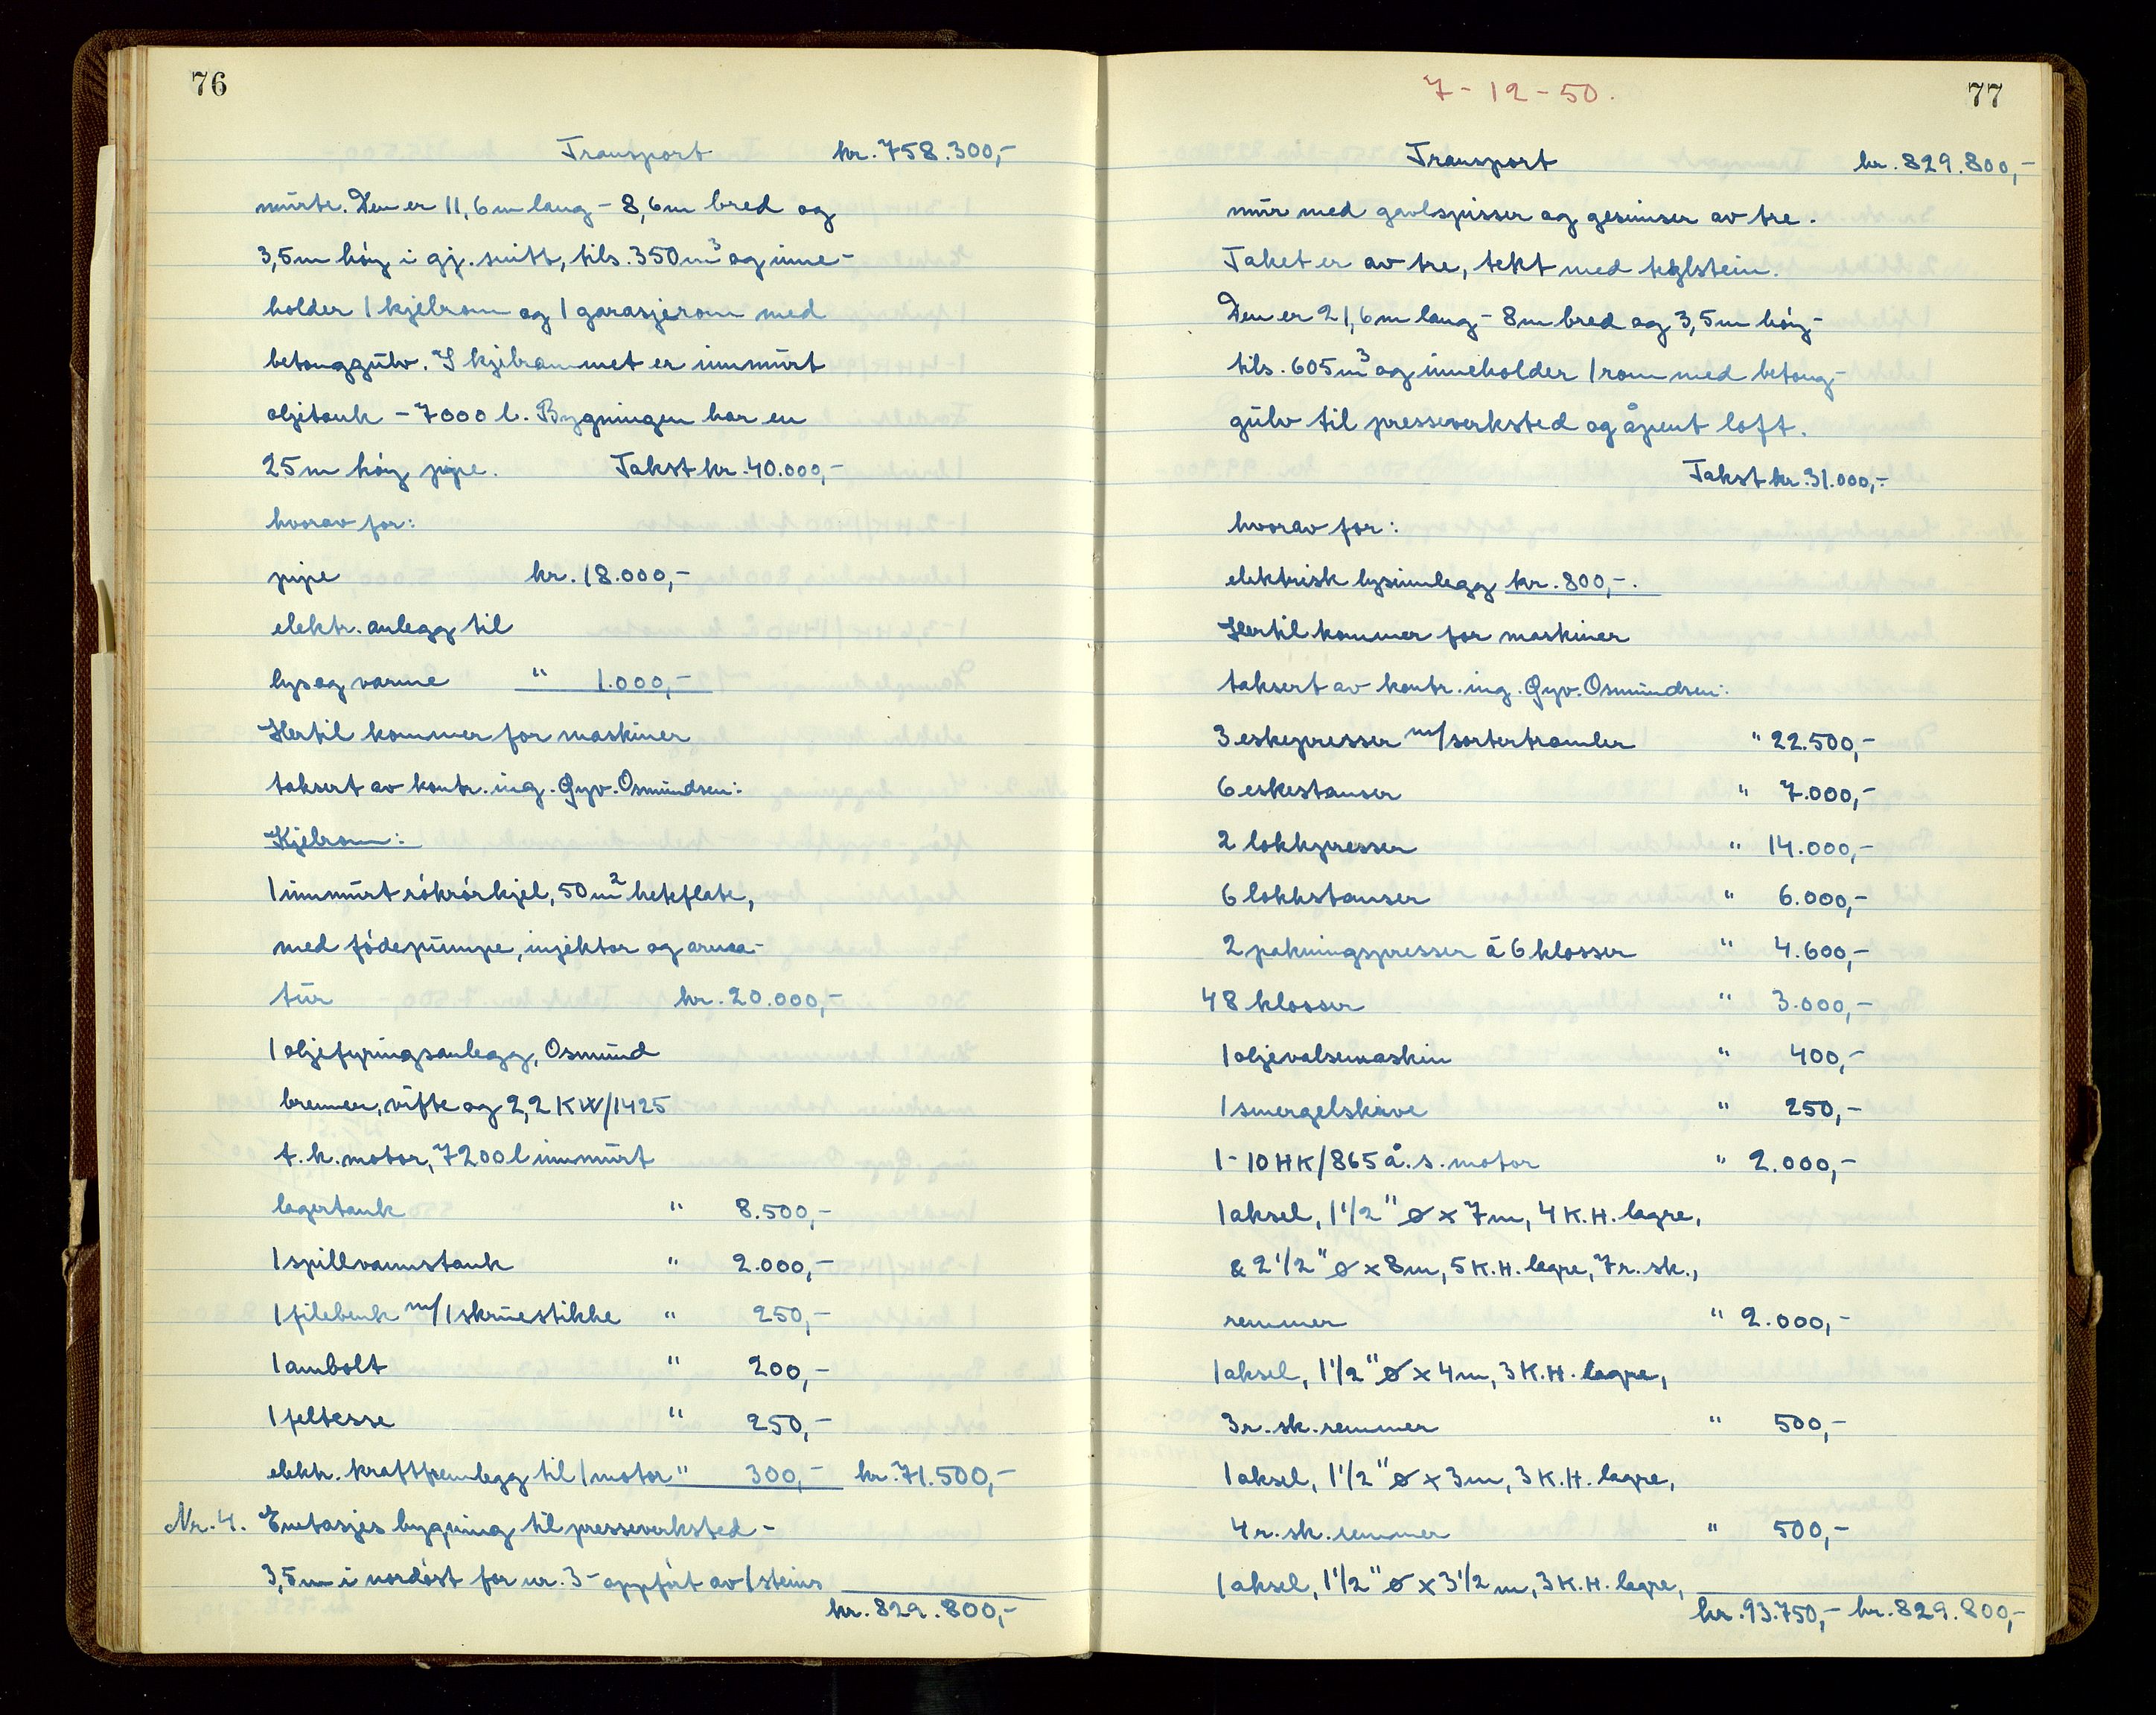 76
Transport kr. 758.300,-
mürte. Den er 11,6 m lang - 8,6 m bred og
3,5 m høy i gj. snitt, tils. 350 m³ og inne-
holder 1 kjelrom og 1 garasjerom med
betonggülv. I kjelrommet er inmürt
oljetank - 7000 l. Bygningen har en
25 m høy pipe. Takst kr. 40.000,-
hvorav for:
pipe kr. 18.000,-
elektr. anlegg til
lys og varme " 1.000,-
Hertil kommer for maskiner
taksert av kontr. ing. Gyv. Osmündsen:
Kjelrom:
1 inmürt røkrørkjel, 50 m² heteflate,
med fødepümpe, injektor og arma-
tür kr. 20.000,-
1 oljefyringsanlegg, Osmünd
brenner, vifte og 2,2 KW/1425
t. k. motor, 7200 l inmürt
lagertank " 8.500,-
1 spillvannstank " 2.000,-
1 filebenk m/1 skrüestikke " 250,-
1 ambolt " 200,-
1 feltesse " 250,-
elektr. kraftfremlegg til 1 motor " 300,- kr. 71.500,-
Nr. 4. Enetasjes bygning til presseverksted -
3,5 m i nordøst for nr. 3 - oppført av 1 steins
kr. 829.800,-
7-12-50.
77
Transport kr. 829.800,-
mür med gavlspisser og gesimser av tre.
Taket er av tre, tekt med teglstein.
Den er 21,6 m lang - 8 m bred og 3,5 m høy -
tils. 605 m³ og inneholder 1 rom med betong-
gülv til presseverksted og åpent loft.
Takst kr. 31.000,-
hvorav for:
elektrisk lysinnlegg kr. 800,-.
Hertil kommer for maskiner
taksert av kontr. ing. Gyv. Osmündsen:
3 eskepresser m/sortertromler " 22.500,-
6 eskestanser " 7.000,-
2 lokkpresser " 14.000,-
6 lokkstanser " 6.000,-
2 pakningspresser á 6 klosser " 4.600,-
48 klosser " 3.000,-
1 oljevalsemaskin " 400,-
1 smergelskive " 250,-
1 - 10 HK/865 å. s. motor " 2.000,-
1 aksel, 1 1/2" ø x 7 m, 4 K.H. lagre,
& 2 1/2" ø x 8 m, 5 K.H. lagre, 7 r. sk.,
remmer " 2.000,-
1 aksel, 1 1/2" ø x 4 m, 3 K.H. lagre,
3 r. sk. remmer " 500,-
1 aksel, 1 1/2" ø x 3 m, 3 K.H. lagre,
4 r. sk. remmer " 500,-
1 aksel, 1 1/2" ø x 3 1/2 m, 3 K.H. lagre,
kr. 93.750,- kr. 829.800,-